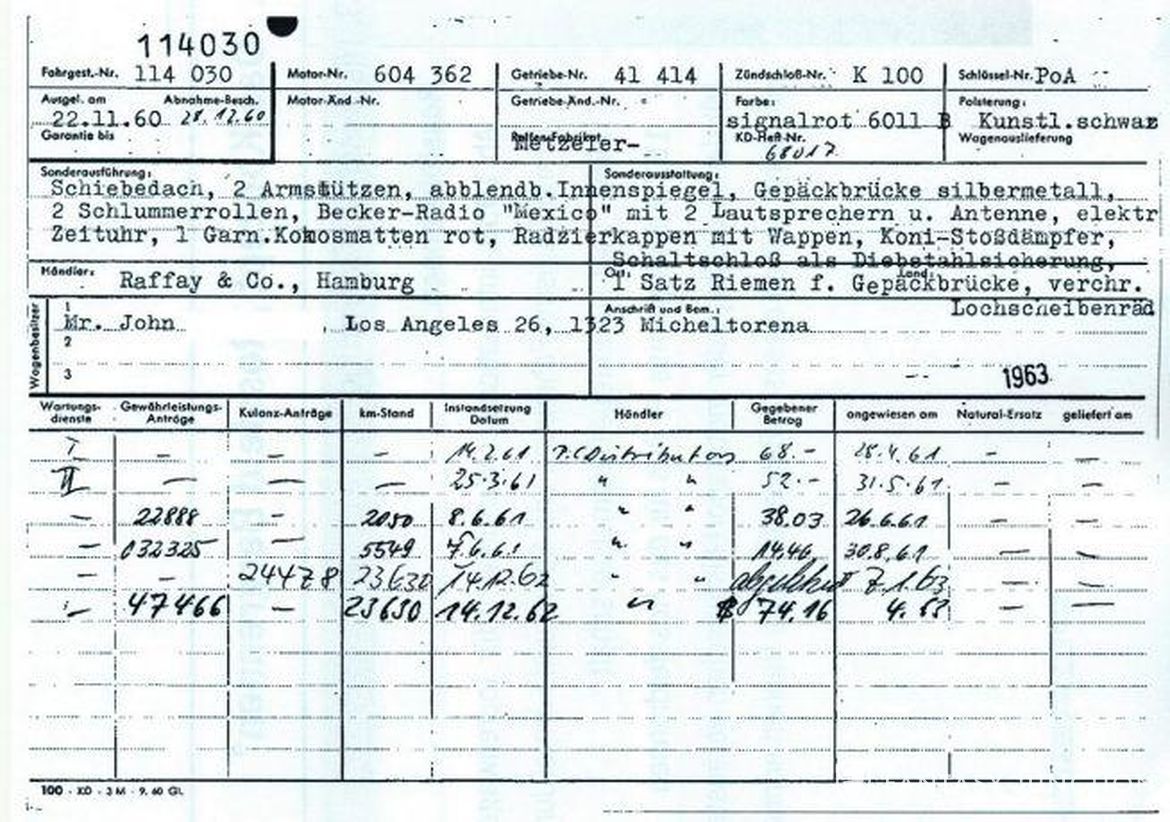 114030
Fahrgest.-Nr. 114 030 Motor-Nr. 604 362 Getriebe-Nr. 41 414 Zündschloß-Nr. K 100 Schlüssel-Nr. PoA
Ausgel. am Abnahme-Besch. Motor-Änd.-Nr. Getriebe-Änd.-Nr. Farbe: Polsterung:
22.11.60 28.12.60 signalrot 6011 B Kunstl.schwaz
Garantie bis Reifen-Fabrikat KD-Heft-Nr. Wagenauslieferung
Metzeler- 68017
Sonderausführung: Sonderausstattung:
Schiebedach, 2 Armstützen, abblendb.Innenspiegel, Gepäckbrücke silbermetall,
2 Schlummerrollen, Becker-Radio "Mexico" mit 2 Lautsprechern u. Antenne, elektr
Zeituhr, 1 Garn.Kokosmatten rot, Radzierkappen mit Wappen, Koni-Stoßdämpfer,
Schaltschloß als Diebstahlsicherung,
Händler: Raffay & Co., Hamburg Ort: 1 Satz Riemen f. Gepäckbrücke, verchr. Land:
Anschrift und Bem.: Lochscheibenräd
Wagenbesitzer
1 Mr. John , Los Angeles 26, 1323 Micheltorena
2
3
1963
Wartungs-dienste Gewährleistungs-Anträge Kulanz-Anträge km-Stand Instandsetzung Datum Händler Gegebener Betrag angewiesen am Natural-Ersatz geliefert am
I - - - 14.2.61 P.C Distributors 68.- 28.4.61 - -
II - - 25.3.61 " " 52.- 31.5.61 - -
- 22888 - 2050 8.6.61 " " 38.03 26.6.61 - -
- 032325 - 5549 7.6.61 " " 14.46 30.8.61 - -
- - 24478 23630 14.12.62 " " abgelehnt 7.1.63 - -
- 47466 - 23630 14.12.62 " $ 74.16 4.63 - -
100 - KD - 3 M - 9. 60 Gl.